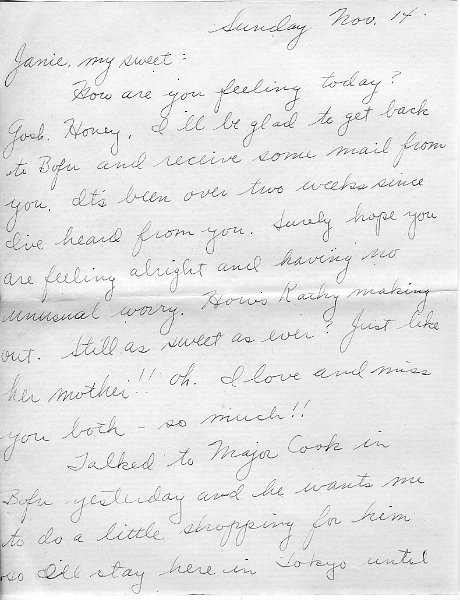 Sunday Nov. 14.
Janie, my sweet:
How are you feeling today?
Gosh, Honey, I'll be glad to get back
to Bofu and receive some mail from
you. It's been over two weeks since
I've heard from you. Surely hope you
are feeling alright and having no
unusual worry. How's Kathy making
out. Still as sweet as ever? Just like
her mother!! Oh, I love and miss
you both - so much!!
Talked to Major Cook in
Bofu yesterday and he wants me
to do a little shopping for him
so I'll stay here in Tokyo until